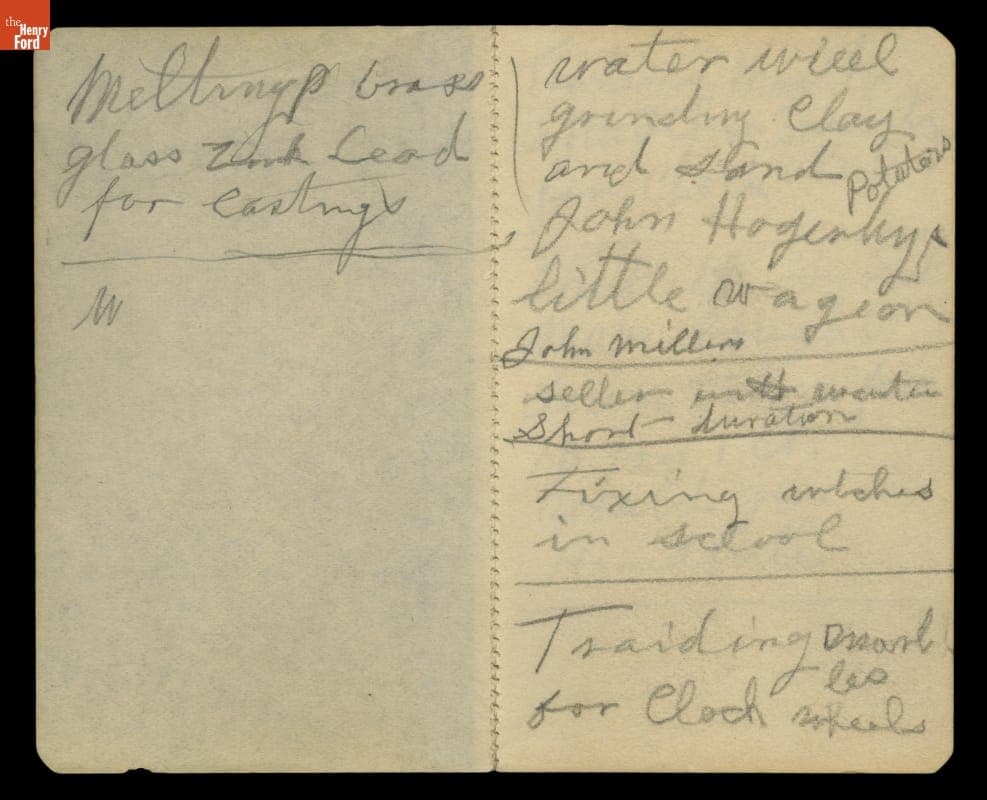 the
Henry
Ford
Meltingp brass
glass Zink Lead
for Castings
W
water wieel
grinding Clay
and sand Potatoes
John Hagenhys
little wageon
John millers
seller with
Short duration
Fixing wtches
in scloool
Traiding marb
les
for Clock wheels